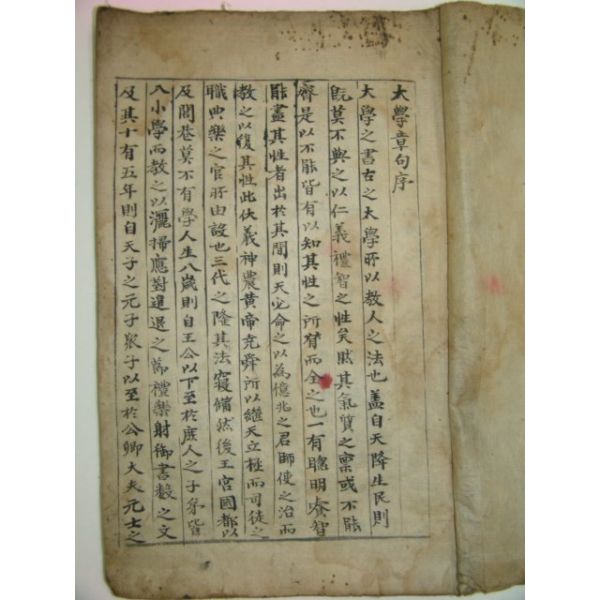 大學章句序
大學之書古之大學所以教人之法也盖自天降生民則
既莫不與之以仁義禮智之性矣然其氣質之禀或不能
齊是以不能皆有以知其性之所有而全之也一有聰明睿智
能盡其性者出於其間則天必命之以為憶兆之君師使之治而
教之以復其性此伏義神農黃帝堯舜所以繼天立極而司徒之
職典樂之官所由設也三代之隆其法寢備然後王宮國都以
及閭巷莫不有學人生八歲則自王公以下至於庶人之子弟皆
入小學而教之以灑掃應對進退之節禮樂射御書數之文
及其十有五年則自天子之元子衆子以至於公卿大夫元士之